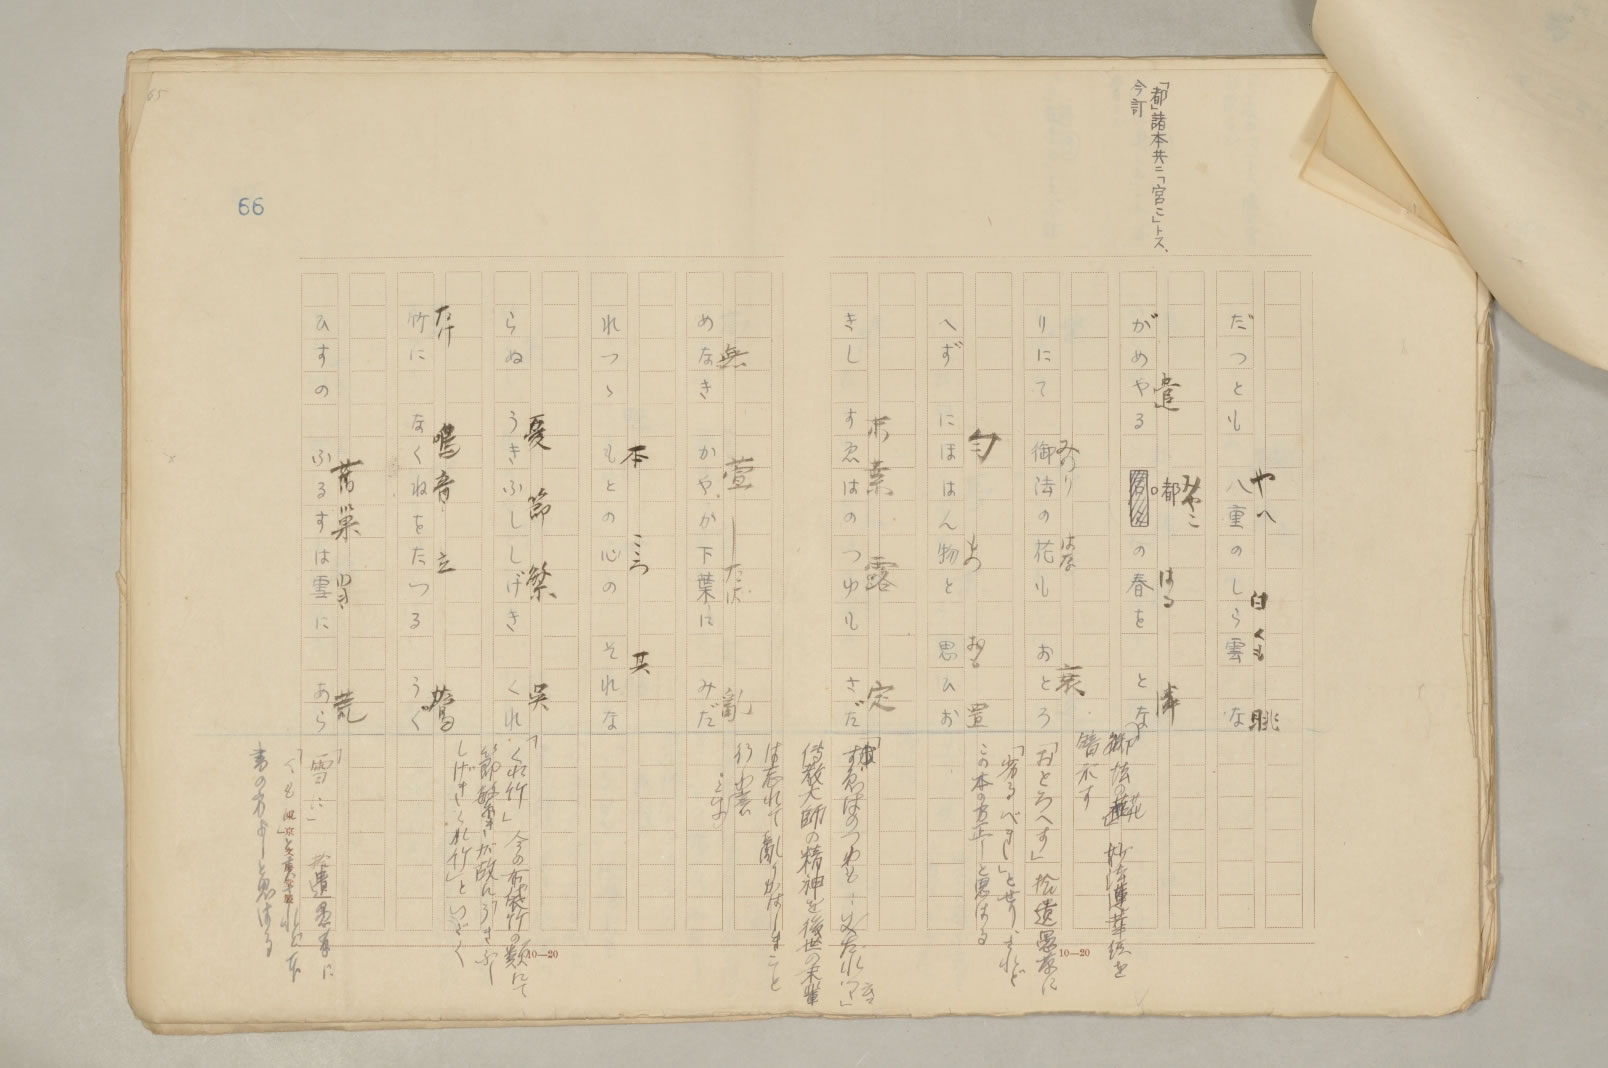 「都」諸本共ニ「宮こ」トス、
今訂
66
65
だつとも 八重のしら雲 な
やへ 白 くも 眺
がめやる 都の春を とな
遣 みやこ はる 隣
りにて 御法の花も おとろ
みのり はな 衰
へず にほはん物と 思ひお
匂 もの おも 置
きし すゑはのつゆも さだ
末葉 露 定
めなき かやが下葉に みだ
無 萱 した は 亂
れつゝ もとの心の それな
本 こゝろ 其
らぬ うきふししげき くれ
憂 節 繁 呉
竹に なくねをたつる うく
たけ 鳴音 立 鶯
ひすの ふるすは雲に あら
舊巣 荒
御法の花 妙法蓮華経を
暗示す
「おとろへす」拾遺愚草に
「劣るべき」と
この本の方正しと思はる
傳教大師の精神を後世の末輩
は忘れて亂りがはしきこと
「くれ竹」 今の布袋竹の類にて
節繁きが故にうきふし
しげきくれ竹」といふ
「雪に」 拾遺愚草に
本の方よしと思はる
10—20
10—20